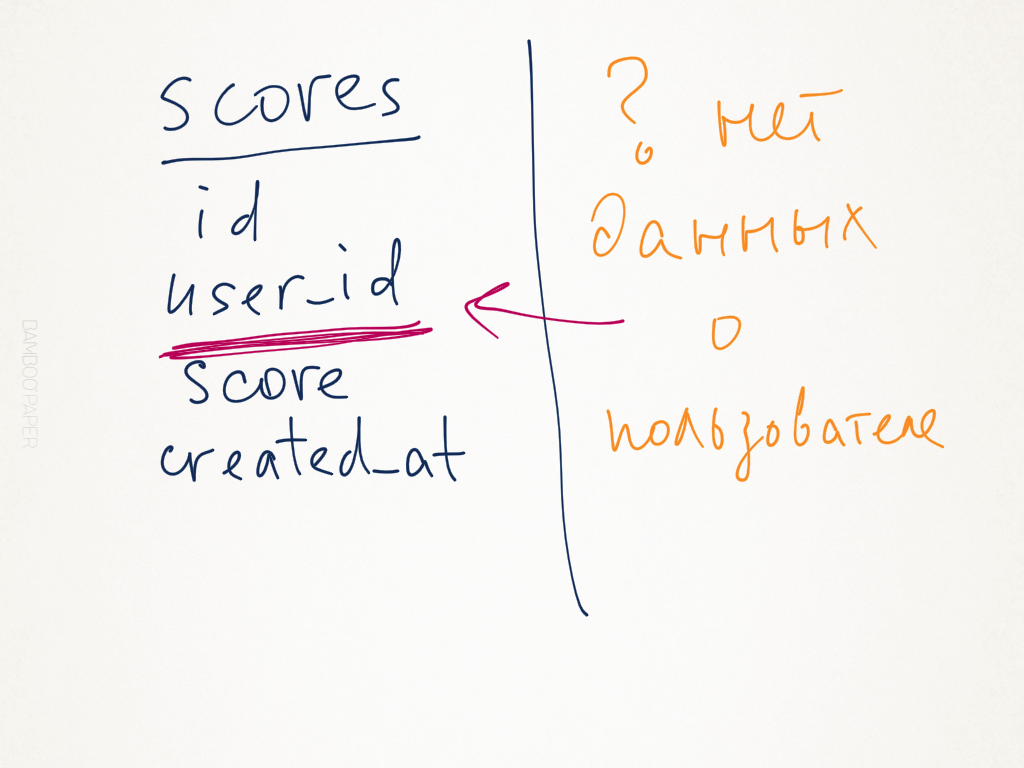 scores
id
user_id
score
created_at
? нет
данных
о
пользователе
BAMBOO PAPER